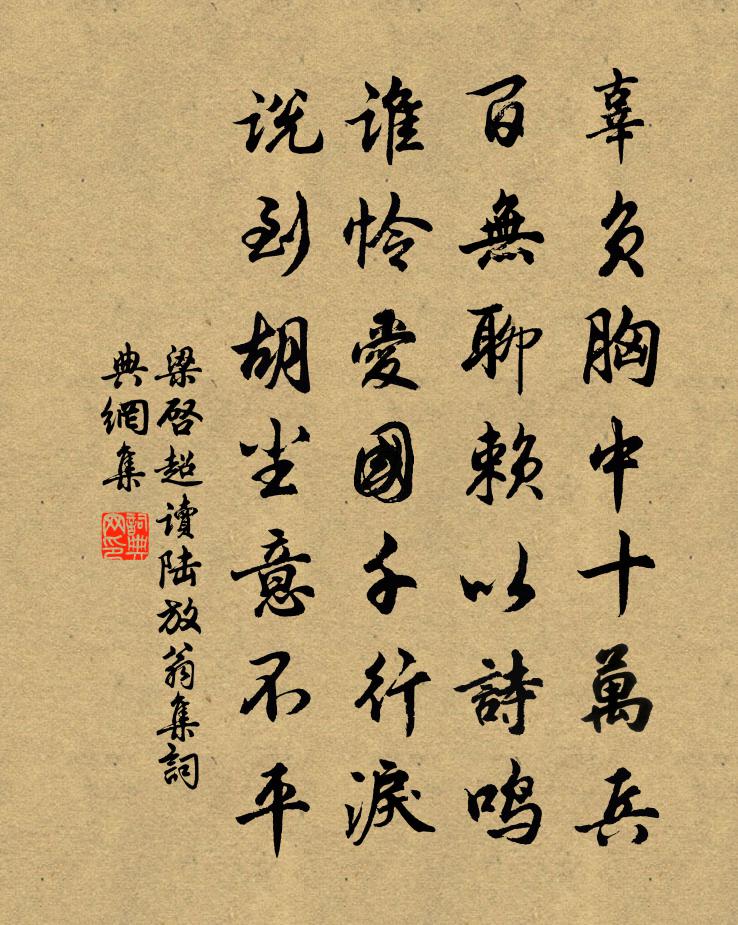 辜负胸中十萬兵
百無聊賴以詩鳴
誰怜愛國千行淚
说到胡尘意不平
梁啓超讀陆放翁集詞
典網集
詞典網印